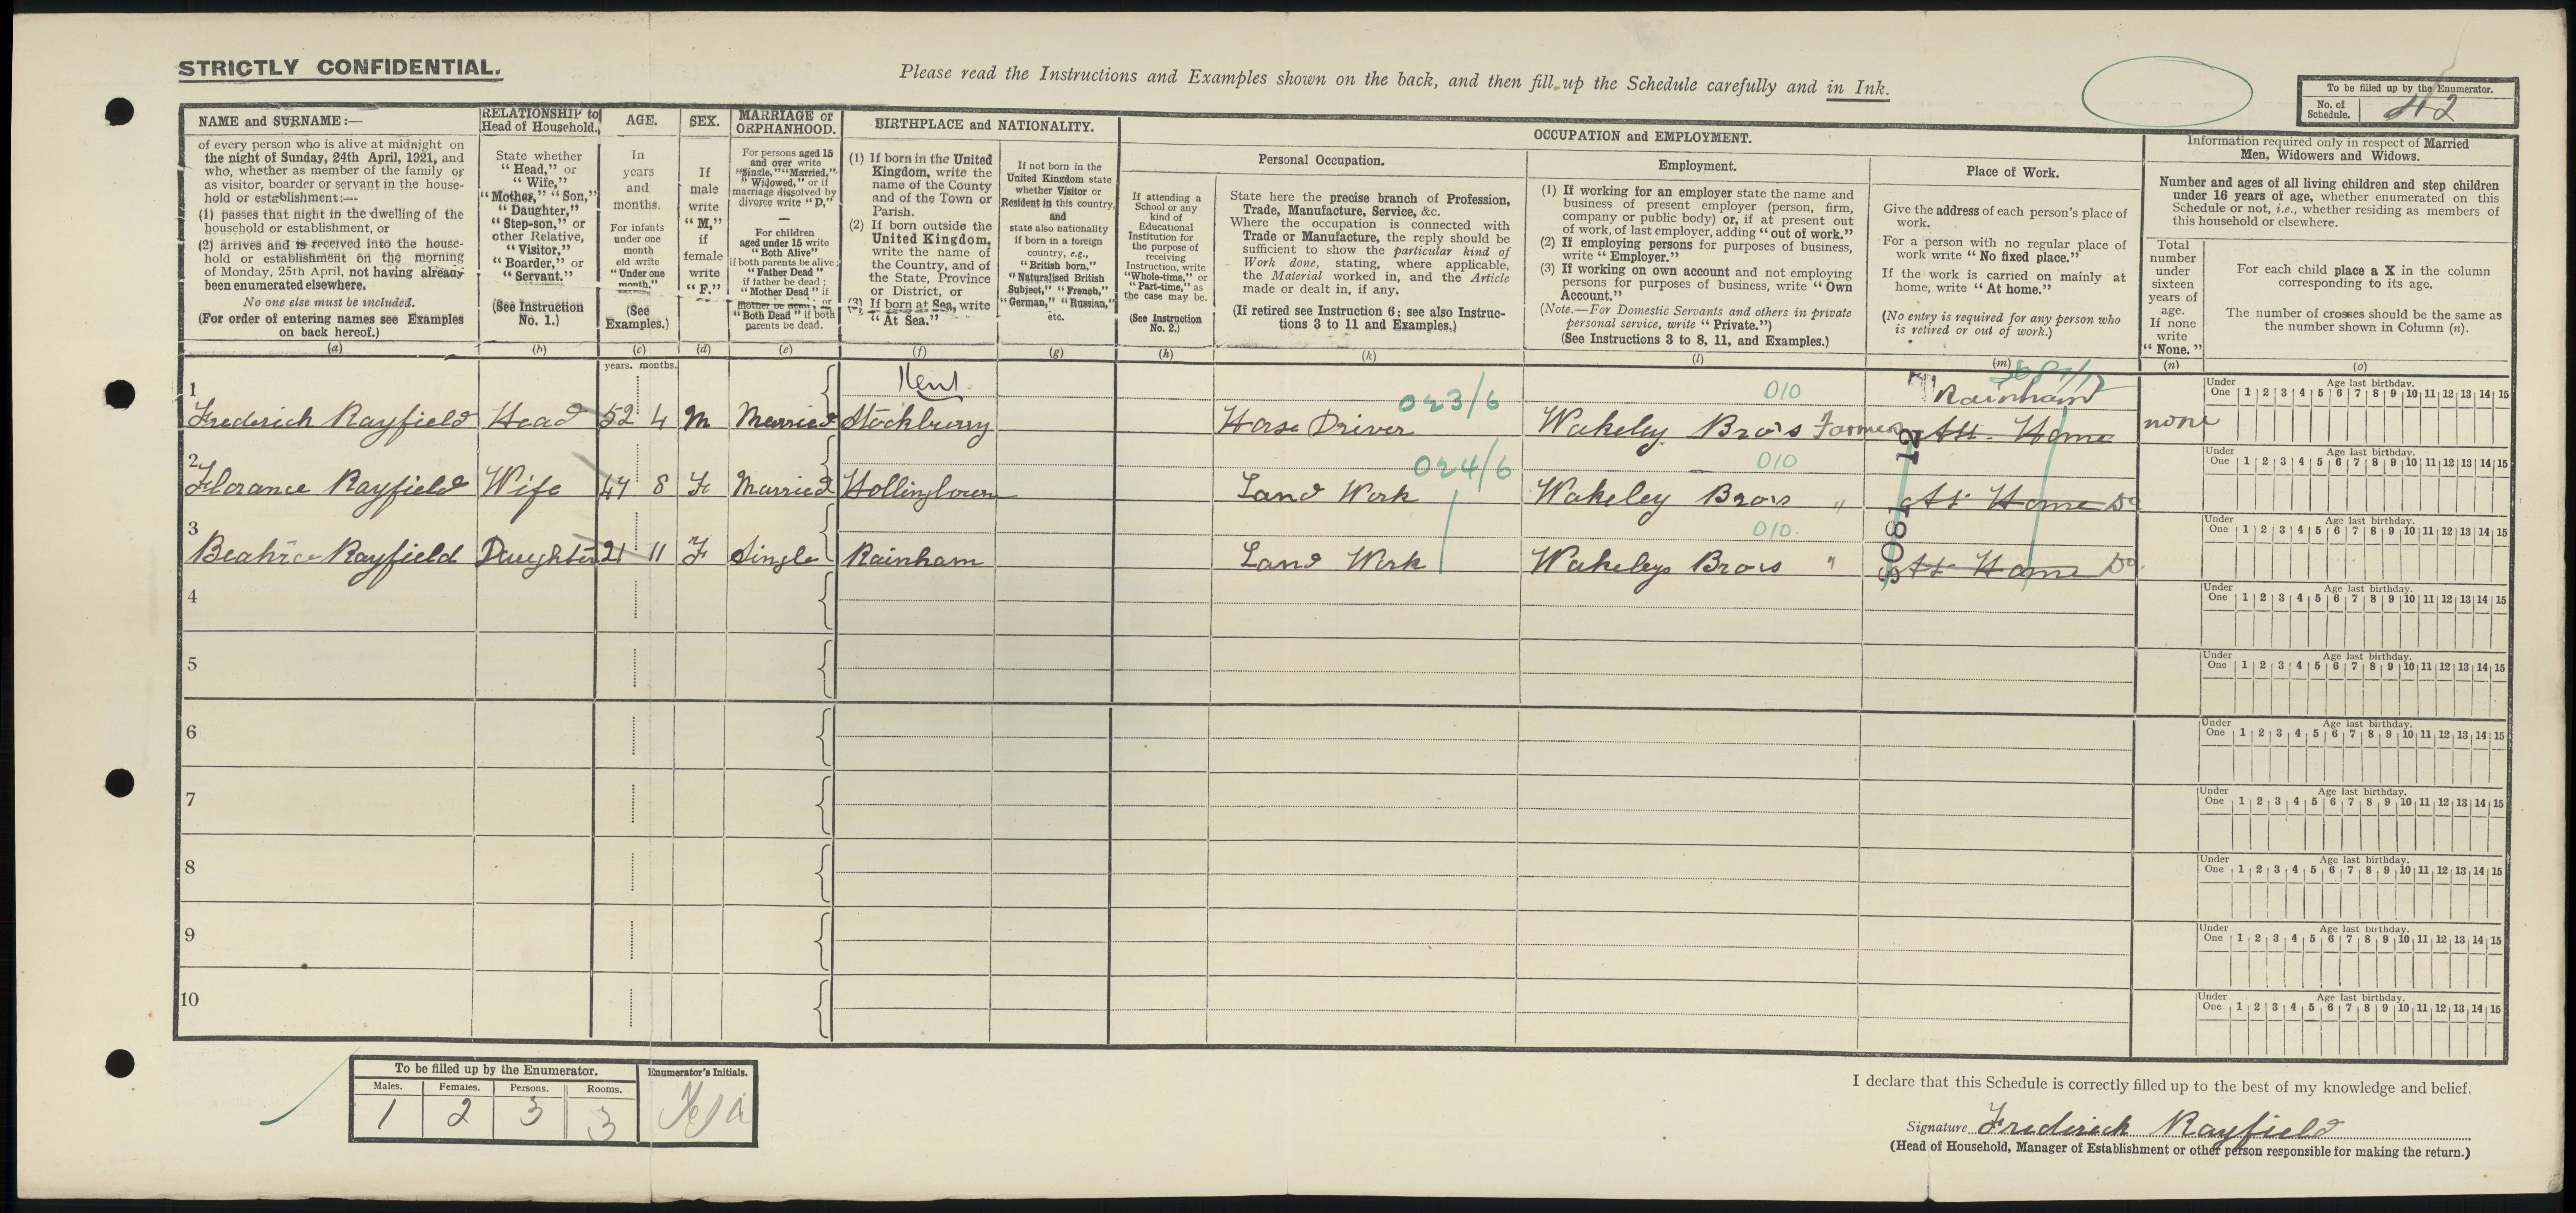 STRICTLY CONFIDENTIAL.
Please read the Instructions and Examples shown on the back, and then fill up the Schedule carefully and in Ink.
To be filled up by the Enumerator.
No. of Schedule. 42
NAME and SURNAME:—
of every person who is alive at midnight on
the night of Sunday, 24th April, 1921, and
who, whether as member of the family or
as visitor, boarder or servant in the house-
hold or establishment:—
(1) passes that night in the dwelling of the
household or establishment, or
(2) arrives and is received into the house-
hold or establishment on the morning
of Monday, 25th April, not having already
been enumerated elsewhere.
No one else must be included.
(For order of entering names see Examples
on back hereof.)
(a)
RELATIONSHIP to
Head of Household.
State whether
"Head," or
"Wife,"
"Mother," "Son,"
"Daughter,"
"Step-son," or
other Relative,
"Visitor,"
"Boarder," or
"Servant."
(See Instruction
No. 1.)
(b)
AGE.
In
years
and
months.
For infants
under one
month
old write
"Under one
month."
(See
Examples.)
(c)
years. months.
SEX.
If
male
write
"M,"
if
female
write
"F."
(d)
MARRIAGE or
ORPHANHOOD.
For persons aged 15
and over write
"Single," "Married,"
"Widowed," or if
marriage dissolved by
divorce write "D."
—
For children
aged under 15 write
"Both Alive"
if both parents be alive;
"Father Dead"
if father be dead;
"Mother Dead" if
mother be dead; or
"Both Dead" if both
parents be dead.
(e)
BIRTHPLACE and NATIONALITY.
(1) If born in the United
Kingdom, write the
name of the County
and of the Town or
Parish.
(2) If born outside the
United Kingdom,
write the name of
the Country, and of
the State, Province
or District, or
(3) If born at Sea, write
"At Sea."
(f)
If not born in the
United Kingdom state
whether Visitor or
Resident in this country,
and
state also nationality
if born in a foreign
country, e.g.,
"British born,"
"Naturalised British
Subject," "French,"
"German," "Russian,"
etc.
(g)
OCCUPATION and EMPLOYMENT.
Personal Occupation.
If attending a
School or any
kind of
Educational
Institution for
the purpose of
receiving
Instruction, write
"Whole-time," or
"Part-time," as
the case may be.
(See Instruction
No. 2.)
(h)
State here the precise branch of Profession,
Trade, Manufacture, Service, &c.
Where the occupation is connected with
Trade or Manufacture, the reply should be
sufficient to show the particular kind of
Work done, stating, where applicable,
the Material worked in, and the Article
made or dealt in, if any.
(If retired see Instruction 6; see also Instruc-
tions 3 to 11 and Examples.)
(k)
Employment.
(1) If working for an employer state the name and
business of present employer (person, firm,
company or public body) or, if at present out
of work, of last employer, adding "out of work."
(2) If employing persons for purposes of business,
write "Employer."
(3) If working on own account and not employing
persons for purposes of business, write "Own
Account."
(Note.—For Domestic Servants and others in private
personal service, write "Private.")
(See Instructions 3 to 8, 11, and Examples.)
(l)
Place of Work.
Give the address of each person's place of
work.
For a person with no regular place of
work write "No fixed place."
If the work is carried on mainly at
home, write "At home."
(No entry is required for any person who
is retired or out of work.)
(m)
Information required only in respect of Married
Men, Widowers and Widows.
Number and ages of all living children and step children
under 16 years of age, whether enumerated on this
Schedule or not, i.e., whether residing as members of
this household or elsewhere.
Total
number
under
sixteen
years of
age.
If none
write
"None."
(n)
For each child place a X in the column
corresponding to its age.
The number of crosses should be the same as
the number shown in Column (n).
(o)
Kent 023/6 010 Rainham
1 Frederick Rayfield Head 52 4 M Married Stockbury Horse Driver Wakeley Bros Farmers At Home none
Under One Age last birthday. 1 2 3 4 5 6 7 8 9 10 11 12 13 14 15
024/6 010
2 Florance Rayfield Wife 47 8 F Married Hollingbourn Land Work Wakeley Bros " At Home Do
Under One Age last birthday. 1 2 3 4 5 6 7 8 9 10 11 12 13 14 15
010
3 Beatrice Rayfield Daughter 21 11 F Single Rainham Land Work Wakeleys Bros " At Home Do.
Under One Age last birthday. 1 2 3 4 5 6 7 8 9 10 11 12 13 14 15
4 Under One Age last birthday. 1 2 3 4 5 6 7 8 9 10 11 12 13 14 15
5 Under One Age last birthday. 1 2 3 4 5 6 7 8 9 10 11 12 13 14 15
6 Under One Age last birthday. 1 2 3 4 5 6 7 8 9 10 11 12 13 14 15
7 Under One Age last birthday. 1 2 3 4 5 6 7 8 9 10 11 12 13 14 15
8 Under One Age last birthday. 1 2 3 4 5 6 7 8 9 10 11 12 13 14 15
9 Under One Age last birthday. 1 2 3 4 5 6 7 8 9 10 11 12 13 14 15
10 Under One Age last birthday. 1 2 3 4 5 6 7 8 9 10 11 12 13 14 15
To be filled up by the Enumerator.
Males. Females. Persons. Rooms.
1 2 3 3
Enumerator's Initials.
I declare that this Schedule is correctly filled up to the best of my knowledge and belief.
Signature Frederick Rayfield
(Head of Household, Manager of Establishment or other person responsible for making the return.)